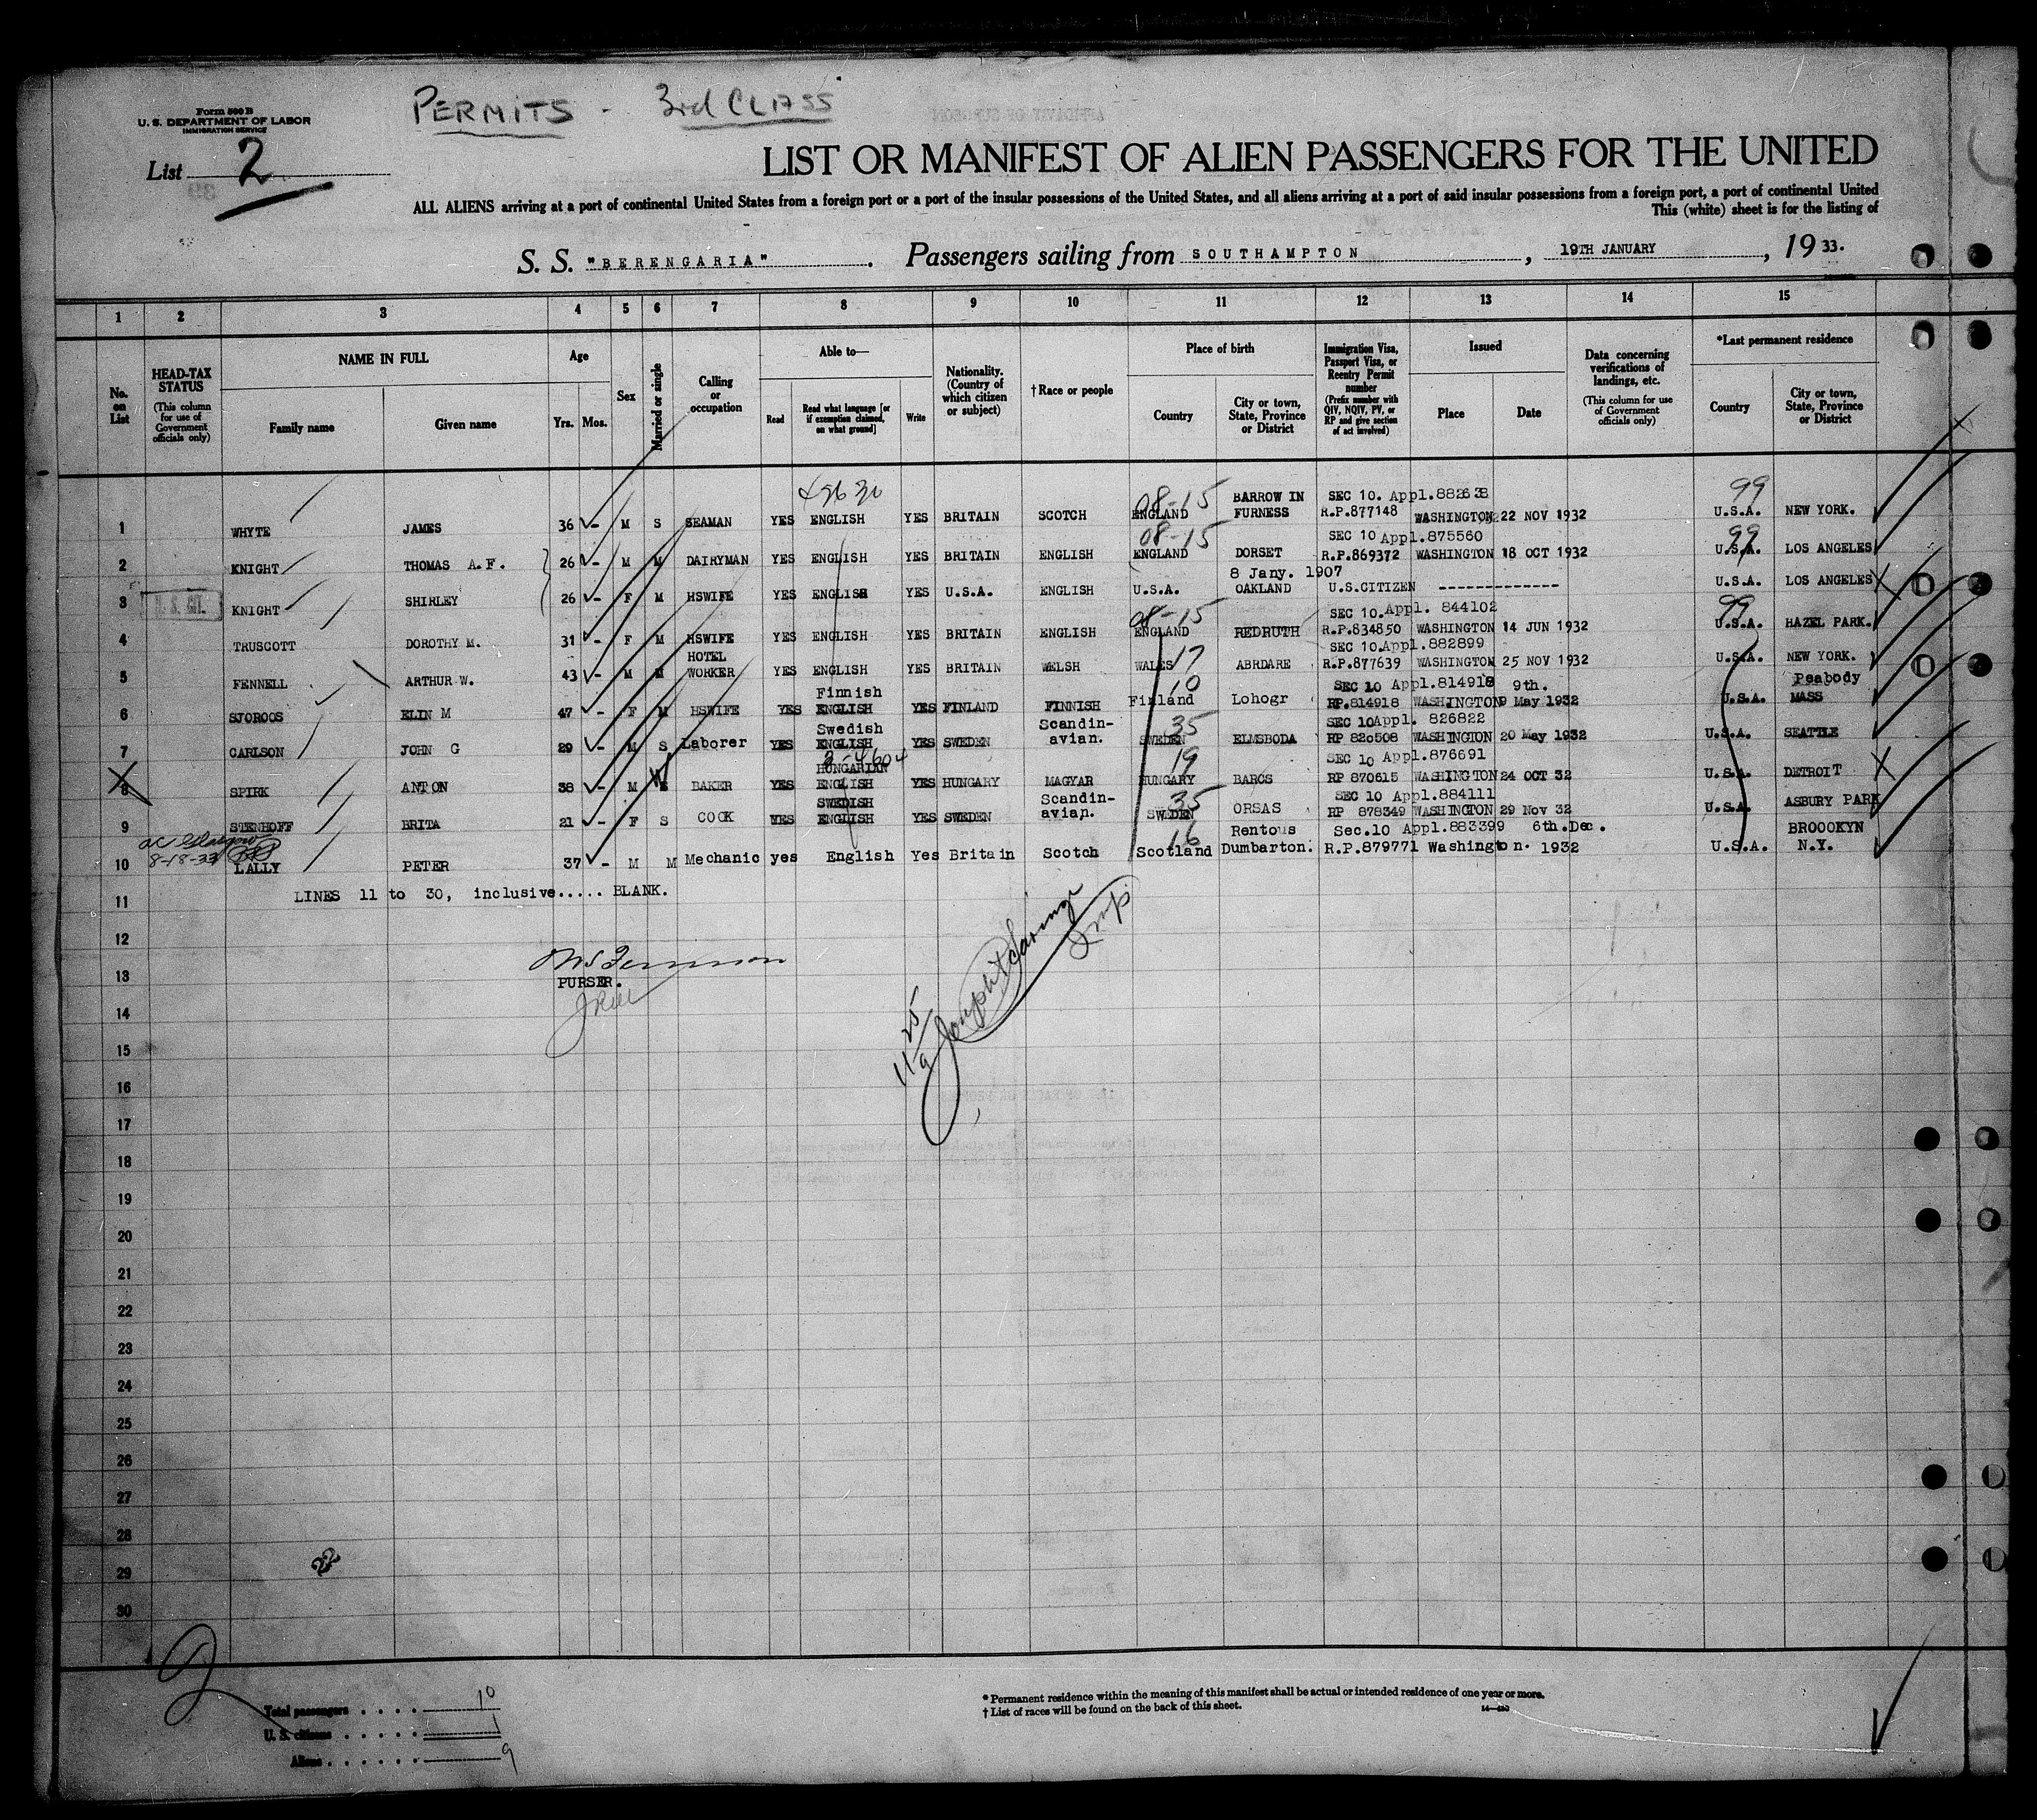 PERMITS - 3rd CLASS
Form 500 B
U. S. DEPARTMENT OF LABOR
IMMIGRATION SERVICE
List 2
LIST OR MANIFEST OF ALIEN PASSENGERS FOR THE UNITED
ALL ALIENS arriving at a port of continental United States from a foreign port or a port of the insular possessions of the United States, and all aliens arriving at a port of said insular possessions from a foreign port, a port of continental United
This (white) sheet is for the listing of
S. S. "BERENGARIA". Passengers sailing from SOUTHAMPTON, 19TH JANUARY, 19 33.
1 2 3 4 5 6 7 8 9 10 11 12 13 14 15
No. on List
HEAD-TAX STATUS (This column for use of Government officials only)
NAME IN FULL
Family name Given name
Age
Yrs. Mos.
Sex
Married or single
Calling or occupation
Able to—
Read Read what language [or if exemption claimed, on what ground] Write
Nationality. (Country of which citizen or subject)
† Race or people
Place of birth
Country City or town, State, Province or District
Immigration Visa, Passport Visa, or Reentry Permit number (Prefix number with QIV, NQIV, PV, or RP and give section of act involved)
Issued
Place Date
Data concerning verifications of landings, etc. (This column for use of Government officials only)
*Last permanent residence
Country City or town, State, Province or District
08-15 BARROW IN SEC 10. Appl.882638 99
1 WHYTE JAMES 36 - M S SEAMAN YES ENGLISH YES BRITAIN SCOTCH ENGLAND FURNESS R.P.877148 WASHINGTON 22 NOV 1932 U.S.A. NEW YORK.
08-15 SEC 10 Appl.875560 99
2 KNIGHT THOMAS A.F. 26 - M M DAIRYMAN YES ENGLISH YES BRITAIN ENGLISH ENGLAND DORSET R.P.869372 WASHINGTON 18 OCT 1932 U.S.A. LOS ANGELES
8 Jany. 1907
3 KNIGHT SHIRLEY 26 - F M HSWIFE YES ENGLISH YES U.S.A. ENGLISH U.S.A. OAKLAND U.S.CITIZEN ------------- U.S.A. LOS ANGELES
08-15 SEC 10. Appl. 844102 99
4 TRUSCOTT DOROTHY M. 31 - F M HSWIFE YES ENGLISH YES BRITAIN ENGLISH ENGLAND REDRUTH R.P.834850 WASHINGTON 14 JUN 1932 U.S.A. HAZEL PARK.
HOTEL 17 SEC 10. Appl.882899
5 FENNELL ARTHUR W. 43 - M M WORKER YES ENGLISH YES BRITAIN WELSH WALES ABRDARE R.P.877639 WASHINGTON 25 NOV 1932 U.S.A. NEW YORK.
Finnish 10 SEC 10 Appl.814918 9th. Peabody
6 SJOROOS ELIN M 47 - F M HSWIFE YES ENGLISH YES FINLAND FINNISH Finland Lohogr RP.814918 WASHINGTON 9 May 1932 U.S.A. MASS
Swedish Scandin- 35 SEC 10 Appl. 826822
7 CARLSON JOHN G 29 - M S Laborer YES ENGLISH YES SWEDEN avian. SWEDEN ELMSBODA RP 820508 WASHINGTON 20 May 1932 U.S.A. SEATTLE
HUNGARIAN 19 SEC 10 Appl.876691
8 SPIRK ANTON 38 - M BAKER YES ENGLISH YES HUNGARY MAGYAR HUNGARY BARCS RP 870615 WASHINGTON 24 OCT 32 U.S.A. DETROIT
SWEDISH Scandin- 35 SEC 10 Appl.884111
9 STENHOFF BRITA 21 - F S COOK YES ENGLISH YES SWEDEN avian. SWEDEN ORSAS RP 878349 WASHINGTON 29 Nov 32 U.S.A. ASBURY PARK
8-18-33 16 Rentous Sec.10 Appl.883399 6th.Dec. BROOOKYN
10 LALLY PETER 37 - M M Mechanic yes English Yes Britain Scotch Scotland Dumbarton. R.P.879771 Washington. 1932 U.S.A. N.Y.
11 LINES 11 to 30, inclusive..... BLANK.
12
13 PURSER.
14
15
16
17
18
19
20
21
22
23
24
25
26
27
28
29
30
Total passengers . . . . 10
U. S. citizens . . . . . 1
Aliens . . . . . . 9
* Permanent residence within the meaning of this manifest shall be actual or intended residence of one year or more.
† List of races will be found on the back of this sheet.